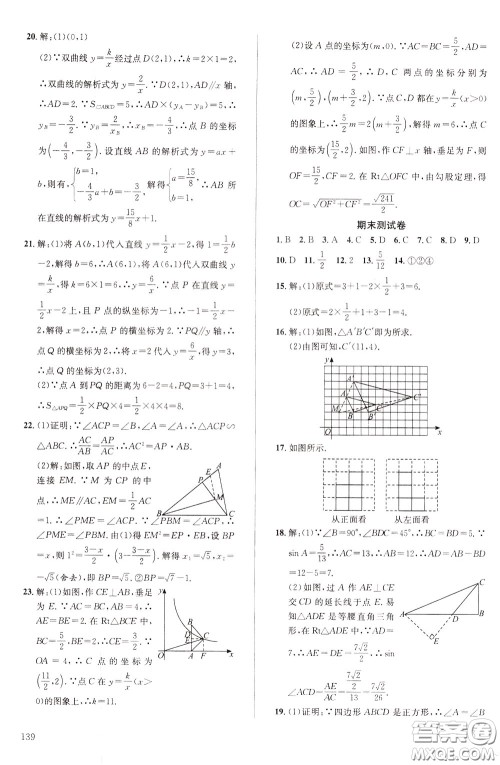 20. 解：(1)(0，1)
(2)∵双曲线 y=k/x 经过点 D(2，1)，∴k=2.
∴双曲线的解析式为 y=2/x. ∵D(2，1)，AD∥x 轴，
∴AD=2. ∵S▱ABCD=5，∴AD×(yA－yB)=5.
∴yB=－3/2. ∵yB=2/xB，∴xB=－4/3. ∴点 B 的坐标
为(－4/3，－3/2). 设直线 AB 的解析式为 y=ax＋
b，则有，{b=1，－4/3a＋b=－3/2，解得{a=15/8，b=1，
∴在直线的解析式为 y=15/8x＋1.
21. 解：(1)将 A(b，1)代入直线 y=1/2x－2，得 1=1/2
b－2，解得 b=6，∴A(6，1)，将 A(6，1)代入双曲线
y=k/x，得 k=6×1=6，∴y=6/x. ∵点 P 在直线 y=
1/2x－2 上，且点 P 的纵坐标为－1，∴－1=1/2x－
2，解得 x=2. ∴点 P 的横坐标为 2. ∵PQ∥y 轴，∴
点 Q 的横坐标为 2. ∵点 Q 在双曲线上，∴y=6/2=3.
∴点 Q 的坐标为(2，3).
(2)∵点 A 到 PQ 的距离为 6－2=4，PQ=3＋1=4，
∴S△APQ=1/2×PQ×4=1/2×4×4=8.
22. (1)证明：∵∠ACP=∠B，∠A=∠A，∴△ACP∽
△ABC. ∴AC/AB=AP/AC. ∴AC²=AP·AB.
(2)解：如图，取 AP 的中点 E，
连接 EM. ∵M 为 CP 的中
点，∴ME∥AC，EM=1/2AC=
1. ∴∠PME=∠ACP. ∵∠PBM=∠ACP，∴
∠PME=∠PBM. 由(1)得
x，则 1²=(3－x)/2·((3－x)/2＋x). 解得 x1=√5，x2=－
√5(舍去)，即 BP=√5. ∴②BP=√7－1.
23. 解：(1)如图，作 CE⊥AB，垂足
为 E. ∵AC=BC，AB=4，∴
AE=BE=2. 在 Rt△BCE 中，
BC=5/2，BE=2，∴CE=3/2. ∵
OA=4，∴C 点的坐标为
(11/2，2). ∵点 C 在 y=k/x(x＞
0)的图象上，∴k=11.
y
B
D
C
E
O
A
F
x
(2)设 A 点的坐标为(m，0). ∵AC=BC=5/2，
AD=5/2，∴D，C 两点的坐标分别为
(m，5/2)，(m＋3/2，2). ∵点 C，D 都在 y=k/x(x＞0)
的图象上，∴5/2m=2(m＋3/2). 解得 m=6. ∴点 C 的
坐标为(15/2，2). 如图，作 CF⊥x 轴，垂足为 F，则
OF=15/2，CF=2. 在 Rt△OFC 中，由勾股定理，得
OC=√(OF²＋CF²)=√241/2.
期末测试卷
1. B 2. B 3. C 4. A 5. C 6. C 7. C 8. D 9. D
10. D 11. 1/2 12. 2/5 13. 5/12 14. ①②④
15. 解：(1)原式=4－1－2×1/2＋3=6.
16. 解：(1)如图，△A′B′C′即为所求.
(2)由图可知，C′(11，4).
17. 如图所示.
从正面看 从左面看
18. 解：(1)∵∠B=90°，∠BDC=45°，∴BC=BD=5. ∵
sin A=5/13，∴AC=13，∴AB=12，∴AD=AB－BD
=12－5=7.
(2)如图，过点 A 作 AE⊥CE
交 CD 的延长线于点 E. 易
知△ADE 是等腰直角三角
形，在 Rt△ADE 中，AD=7，
∠ADE=45°，∴AE=7√2/2，∴sin
∠ACD=AE/AC=(7√2/2)/13=7√2/26.
A
B
C
D
E
19. (1)证明：∵四边形 ABCD 是正方形，∴∠A=∠B
139